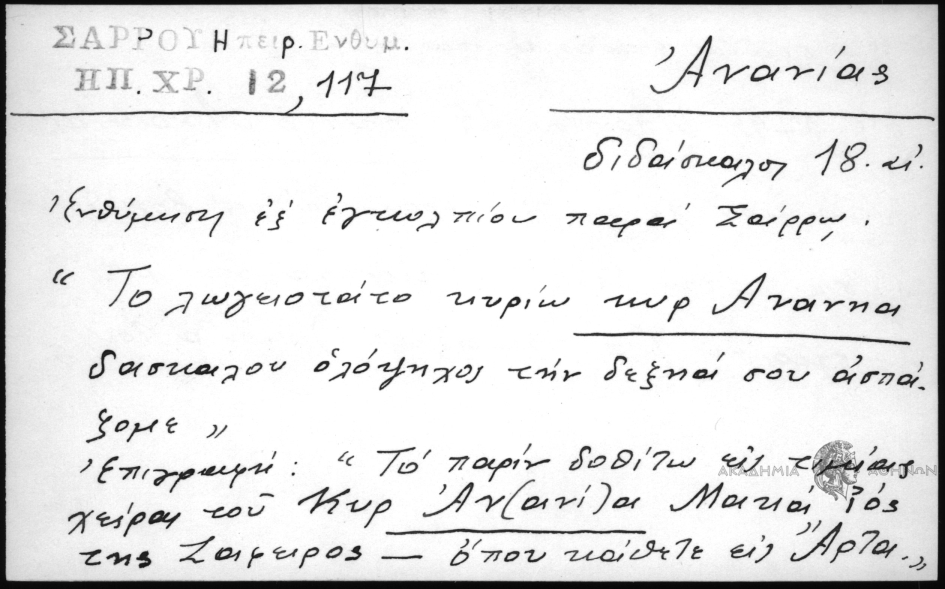 ΣΑΡΡΟΥ Ηπειρ. Ενθυμ.
ΗΠ. ΧΡ. 12, 117
Ἀνανίας
διδάσκαλος 18. αἰ.
Ἐνθύμηση ἐξ ἐγκολπίου παρὰ Σάρρῳ.
“ Το λωγειοτάτο κυρίω κυρ Ανανηα
δασκαλου ὁλόψηχος τὴν δεξηά σου ἀσπά-
ζομε „
Ἐπιγραφή: “ Τὸ παρὶν δοθίτω εἰς τιμίας
χείρας τοῦ Κυρ Ἀν(ανί)α
της — ὅπου κάθετε εἰς Ἄρτα. „
ΑΚΑΔΗΜΙΑ ΑΘΗΝΩΝ